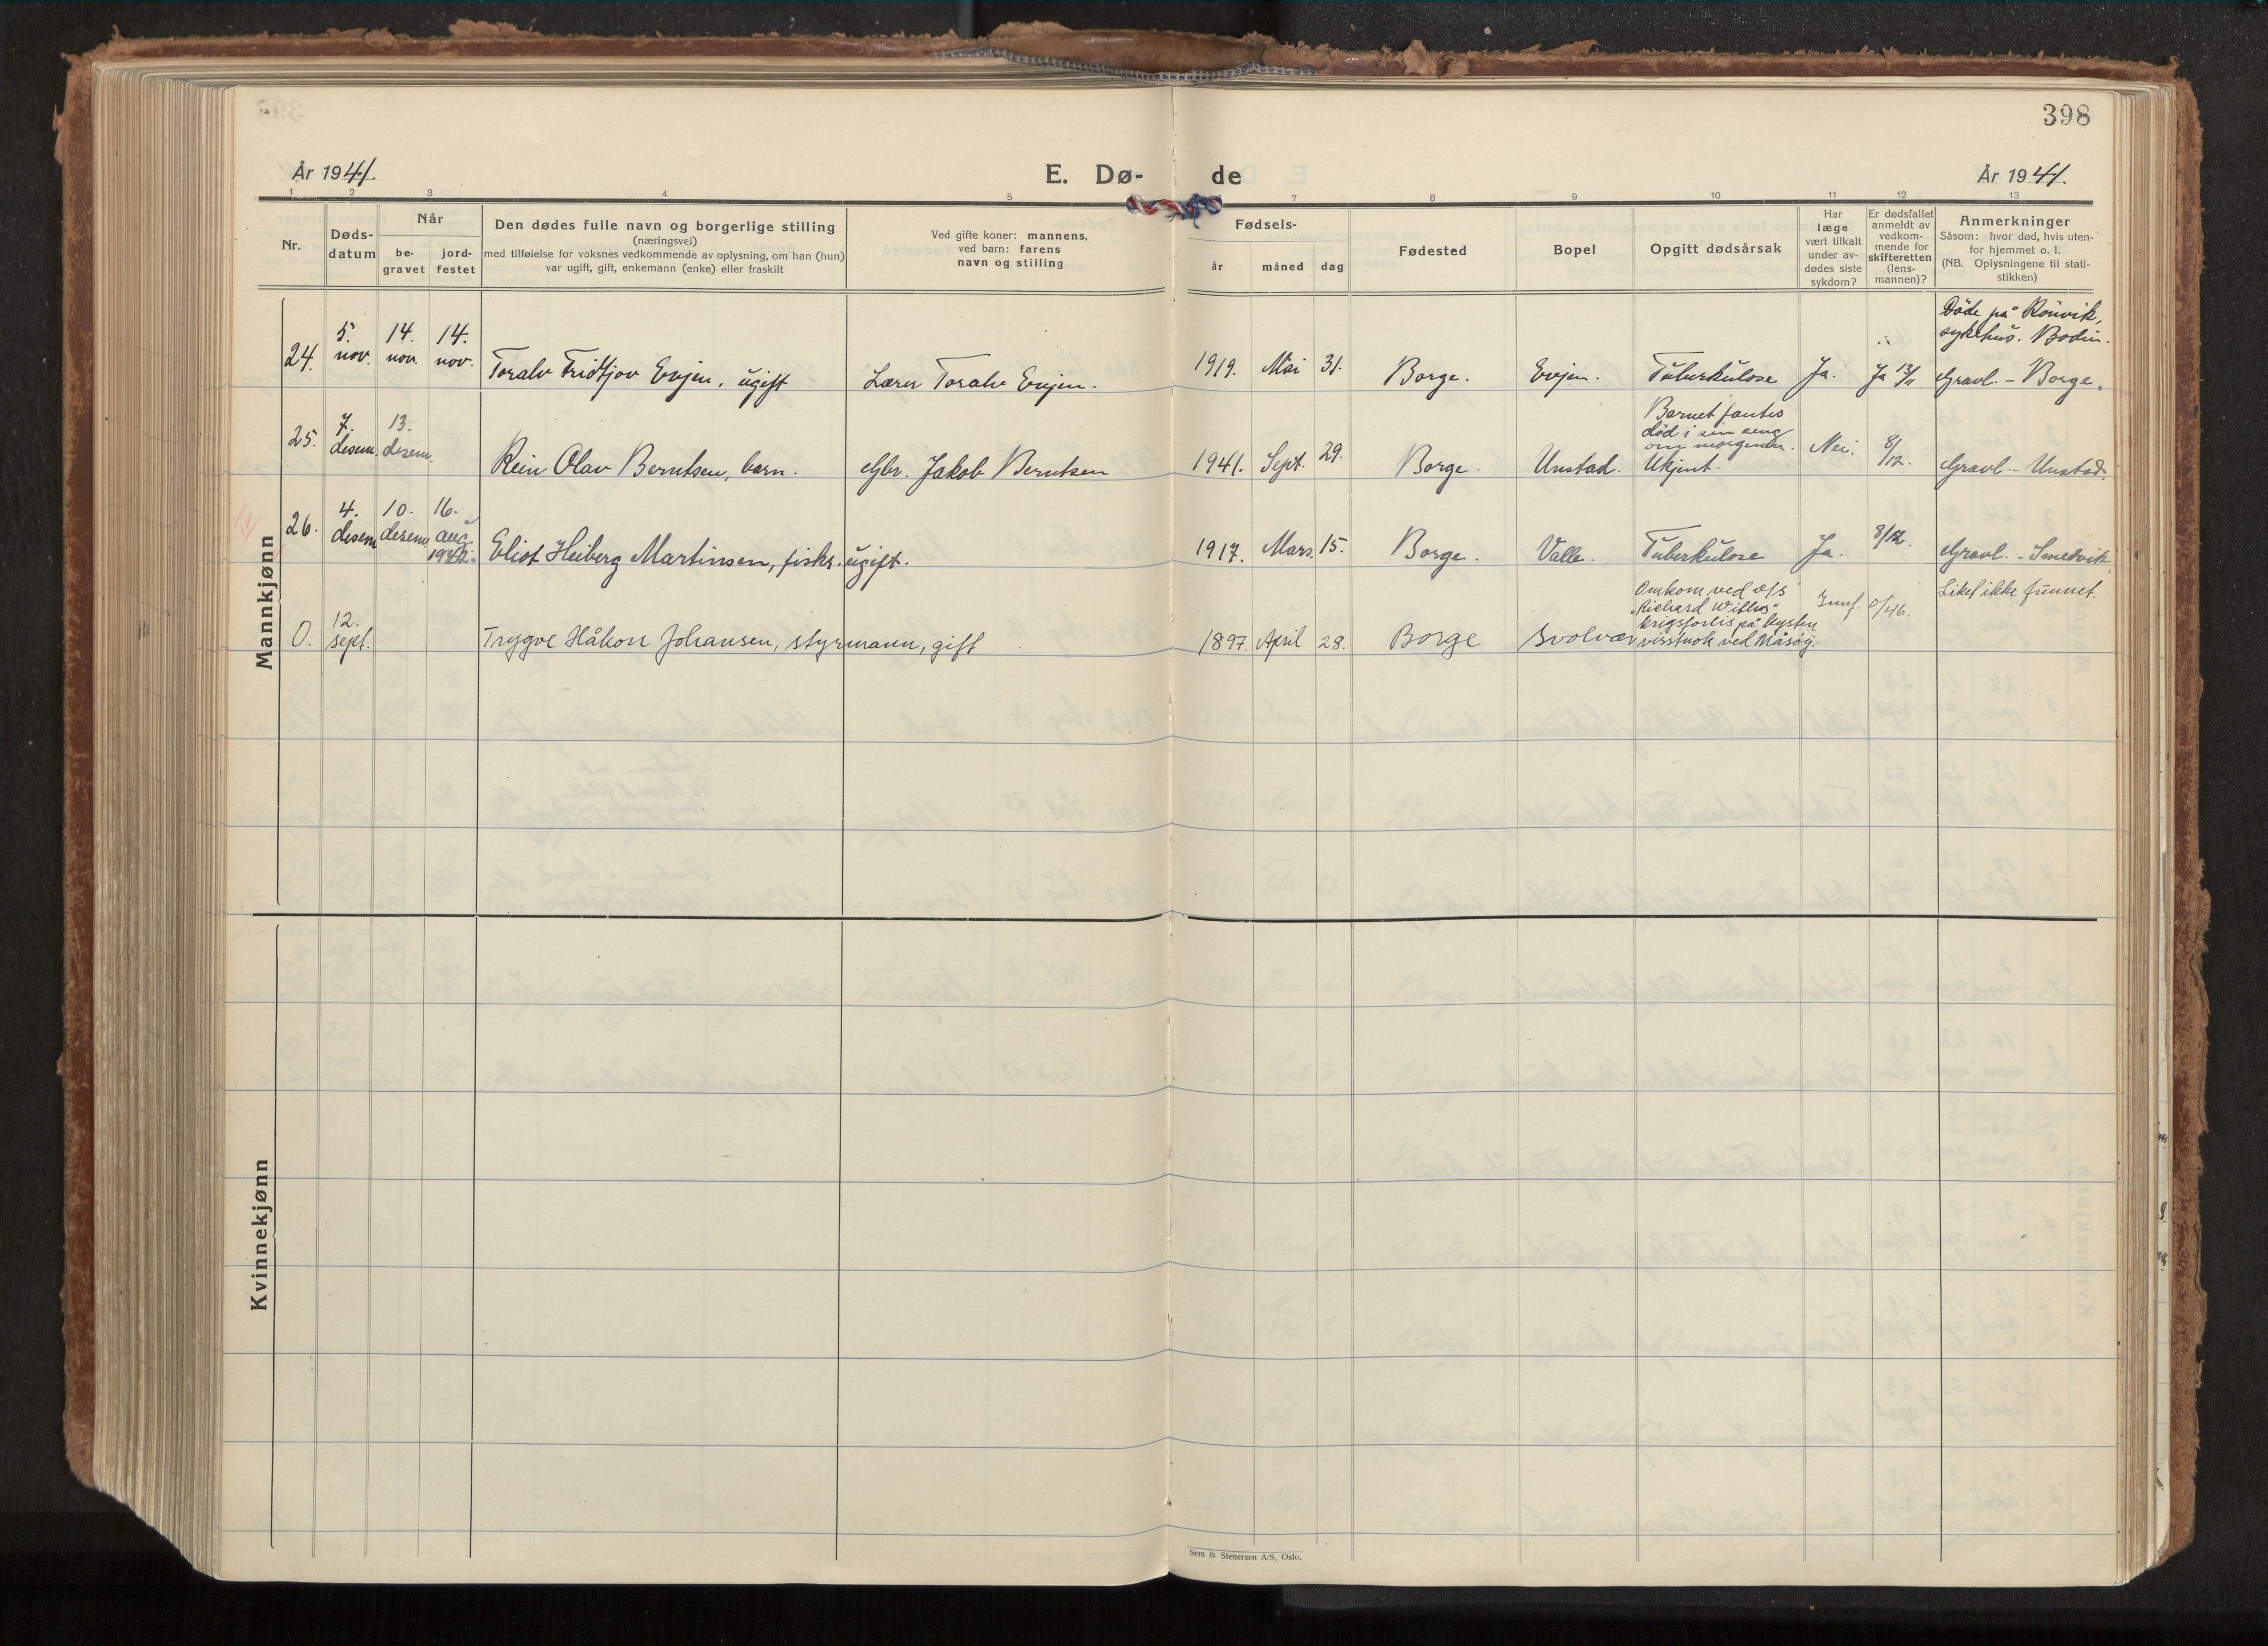 398
År 1941.
E. Dø-
de
År 1941.
1 2 3 4 5 7 8 9 10 11 12 13
Nr.
Døds-
datum
Når
be-
gravet
jord-
festet
Den dødes fulle navn og borgerlige stilling
(næringsvei)
med tilføielse for voksnes vedkommende av oplysning, om han (hun)
var ugift, gift, enkemann (enke) eller fraskilt
Ved gifte koner: mannens,
ved barn: farens
navn og stilling
Fødsels-
år
måned
dag
Fødested
Bopel
Opgitt dødsårsak
Har
læge
vært tilkalt
under av-
dødes siste
sykdom?
Er dødsfallet
anmeldt av
vedkom-
mende for
skifteretten
(lens-
mannen)?
Anmerkninger
Såsom: hvor død, hvis uten-
for hjemmet o. l.
(NB. Oplysningene til stati-
stikken)
Mannkjønn
24.
5.
nov.
14.
nov.
14.
nov.
Toralv Fridtjov Evjen, ugift
Lærer Toralv Evjen.
1919. Mai 31.
Borge.
Evjen.
Tuberkulose
Ja.
Ja 13/11
Døde på Rönvik,
sykehus. Bodin.
Gravl. - Borge.
25.
7.
desem.
13.
desem.
Rein Olav Berntsen, barn.
Gbr. Jakob Berntsen
1941. Sept. 29.
Borge.
Unstad.
Barnet fantes
död i sin seng
om morgenen.
Ukjent.
Nei.
8/12.
Gravl. - Unstad.
26.
4.
desem
10.
desem
16.
aug.
1942.
Eliot Heiberg Martinsen, fisker. ugift.
1917. Mars. 15.
Borge.
Valle.
Tuberkulose
Ja.
8/12.
Gravl. - Smedvik
0.
12.
sept.
Trygve Håkon Johansen, styrmann, gift
1897. April 28.
Borge
Svolvær
Omkom ved d/s
"Richard With's"
krigsforlis på kysten
visstnok ved Måsøy.
Innf. 0/46.
Liket ikke funnet.
Kvinnekjønn
Sem & Stenersen A/S, Oslo.